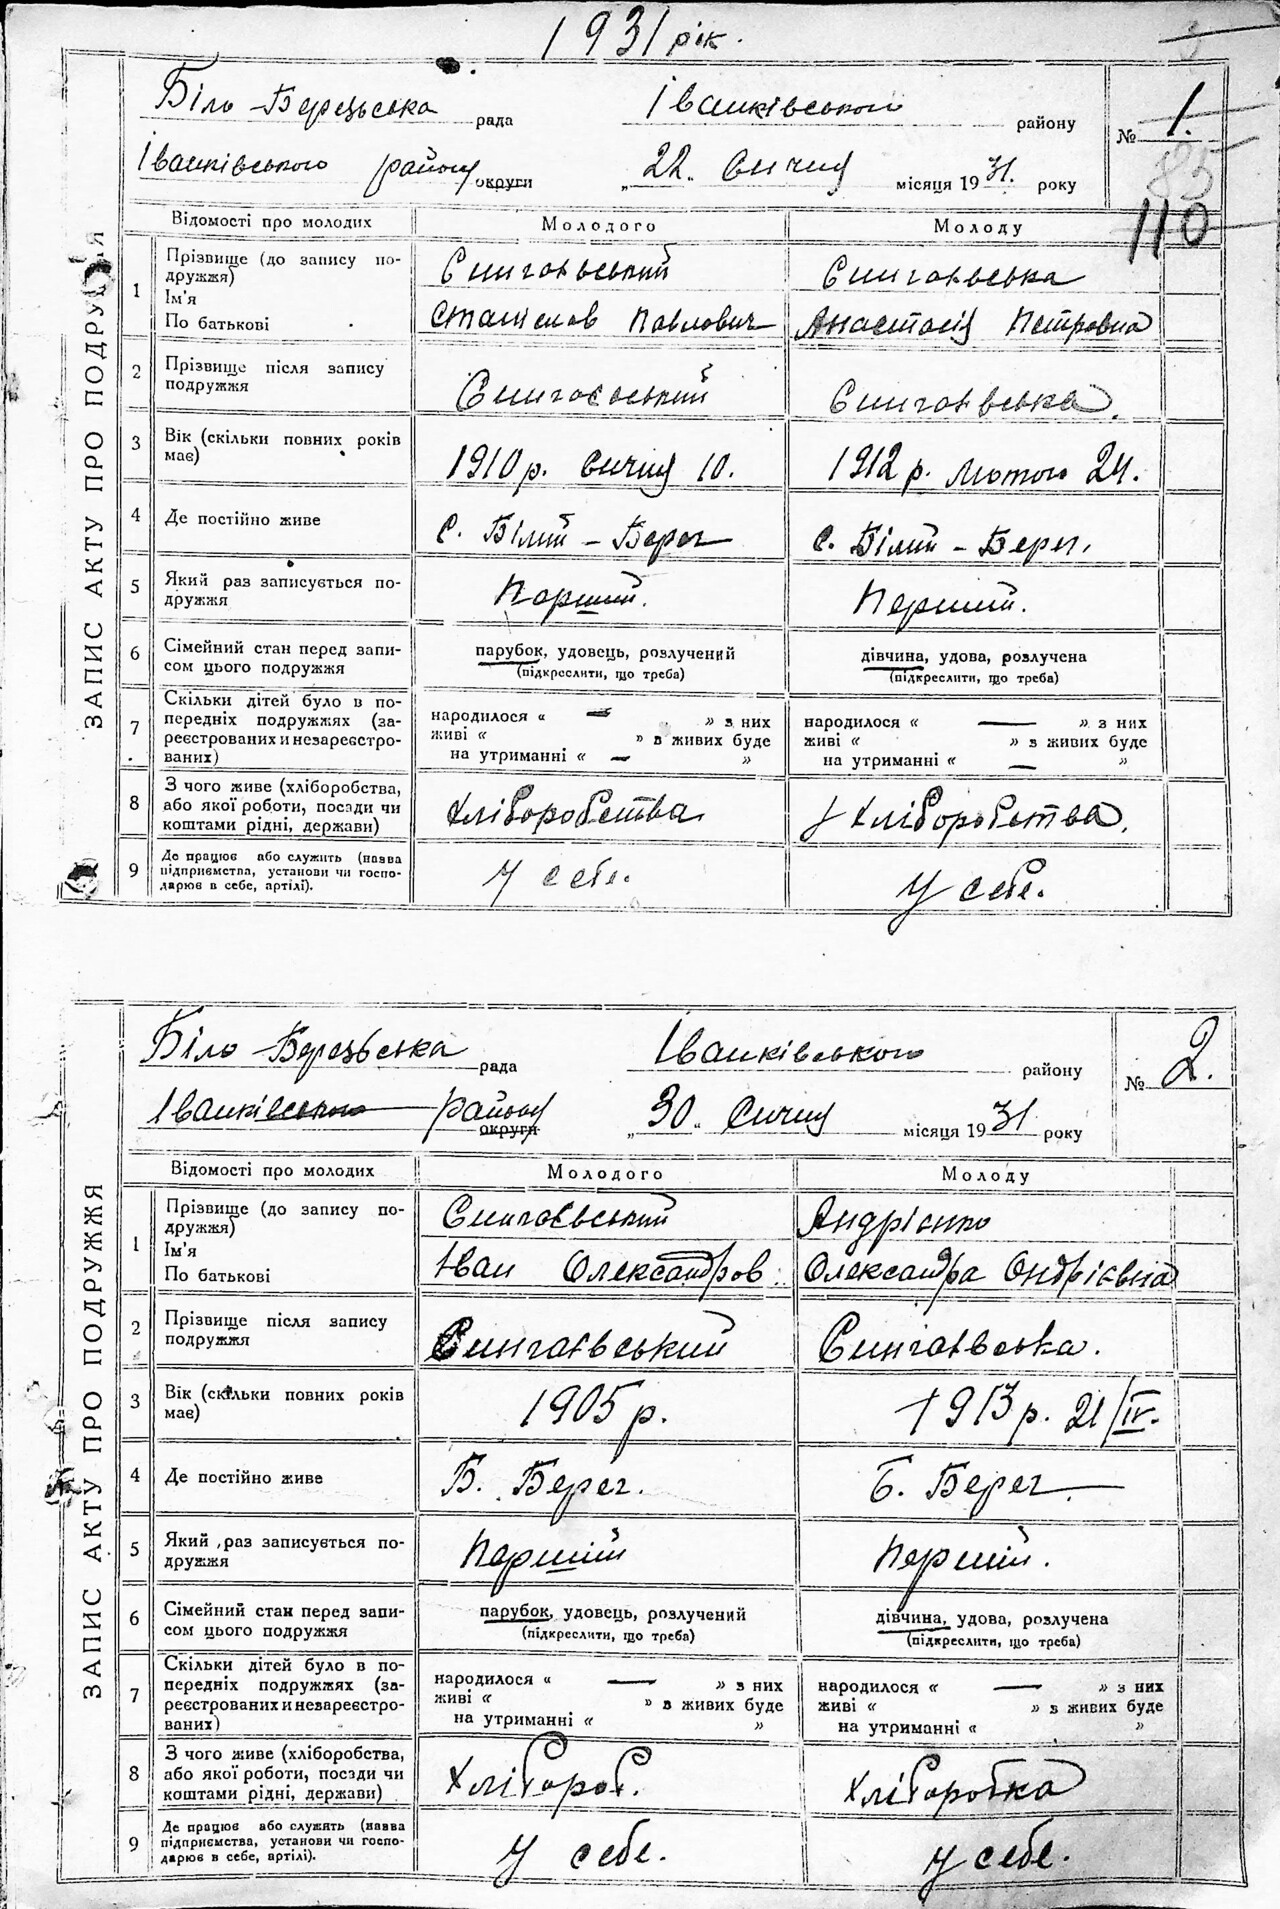 1931 рік.
Біло-Берецьська рада Іванківського району № 1.
Іванківського району округи „22„ Січня місяця 1931. року
85
110
ЗАПИС АКТУ ПРО ПОДРУЖЖЯ
Відомості про молодих Молодого Молоду
1 Прізвище (до запису подружжя) Сингаївський Сингаївська
Ім'я
По батькові Станіслав Павлович Анастасія Петровна
2 Прізвище після запису
подружжя Сингаєвський Сингаївська.
3 Вік (скільки повних років
має) 1910 р. Січня 10. 1912 р. Лютого 24.
4 Де постійно живе с. Білий-Берег с. Білий-Берег.
5 Який раз записується по-
дружжя Перший. Перший.
6 Сімейний стан перед запи- парубок, удовець, розлучений дівчина, удова, розлучена
сом цього подружжя (підкреслити, що треба) (підкреслити, що треба)
7 Скільки дітей було в по-
передніх подружжях (за- народилося « — » з них народилося « — » з них
реєстрованих и незареєстро- живі « » в живих буде живі « » з живих буде
ваних) на утриманні « — » на утриманні « — »
8 З чого живе (хліборобства,
або якої роботи, посади чи Хліборобства У Хліборобства.
коштами рідні, держави)
9 Де працює або служить (назва
підприємства, установи чи госпо- У себе. У себе.
дарює в себе, артілі).
Біло-Берецьська рада Іванківського району № 2.
Іванківського району округи „30„ Січня місяця 1931 року
ЗАПИС АКТУ ПРО ПОДРУЖЖЯ
Відомості про молодих Молодого Молоду
1 Прізвище (до запису по-
дружжя) Сингаєвський Андрієнко
Ім'я
По батькові Іван Олександров. Олександра Ондріївна
2 Прізвище після запису
подружжя Сингаївський Сингаївська.
3 Вік (скільки повних років
має) 1905 р. 1913 р. 21/IV.
4 Де постійно живе Б. Берег. Б. Берег
5 Який раз записується по-
дружжя Перший Перший.
6 Сімейний стан перед запи- парубок, удовець, розлучений дівчина, удова, розлучена
сом цього подружжя (підкреслити, що треба) (підкреслити, що треба)
7 Скільки дітей було в по-
передніх подружжях (за- народилося « — » з них народилося « — » з них
реєстрованих и незареєстро- живі « » в живих буде живі « » з живих буде
ваних) на утриманні « » на утриманні « »
8 З чого живе (хліборобства,
або якої роботи, посади чи Хлібороб. Хліборобка
коштами рідні, держави)
9 Де працює або служять (назва
підприємства, установи чи госпо- У себе. У себе.
дарює в себе, артілі).